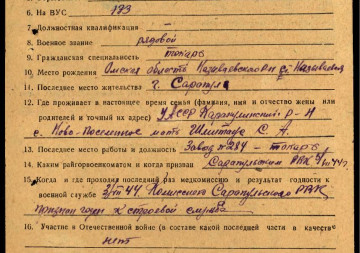 6. На ВУС 133
7. Должностная квалификация -
8. Военное звание рядовой
9. Гражданская специальность токарь
10. Место рождения Омская область Называевский р-н с. Называевка
11. Последнее место жительства г. Сарапул
12. Где проживает в настоящее время семья (фамилия, имя и отчество жены или
родителей и точный их адрес) УАССР Каракулинский р-н
с. Ново-Поселенное мать С. А.
13. Последнее место работы и должность Завод № 284 - токарь
14. Каким райгорвоенкоматом и когда призван Сарапульским РВК
15. Когда и где проходил последний раз медкомиссию и результат годности к
военной службе Комиссией Сарапульского РВК
признан годен к строевой службе
16. Участие в Отечественной войне (в составе какой последней части в качестве
нет